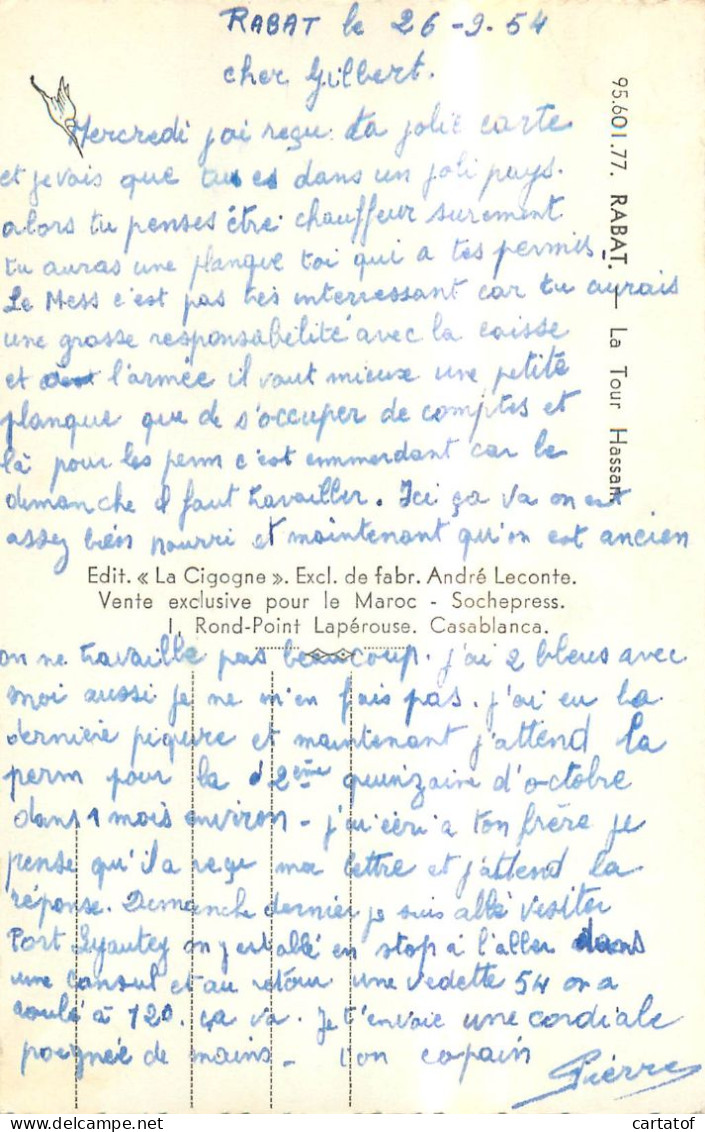 RABAT le 26-9-54
cher Gilbert.
Mercredi j'ai reçu ta jolie carte
et je vois que tu es dans un joli pays.
alors tu penses être chauffeur surement
tu auras une planque toi qui a tes permis.
Le Mess c'est pas très interressant car tu aurais
une grosse responsabilité avec la caisse
et l'armée il vaut mieux une petite
planque que de s'occuper de comptes et
là pour les perm c'est emmerdant car le
dimanche il faut travailler. Ici ça va on est
assez bien nourri et maintenant qu'on est ancien
Edit. « La Cigogne ». Excl. de fabr. André Leconte.
Vente exclusive pour le Maroc - Sochepress.
1, Rond-Point Lapérouse. Casablanca.
on ne travaille pas beaucoup. j'ai 2 bleus avec
moi aussi je ne m'en fais pas. j'ai eu la
dernière piqure et maintenant j'attend la
perm pour la 2ème quinzaine d'octobre
dans 1 mois environ - j'ai écri à ton frère je
pense qu'il a reçu ma lettre et j'attend la
réponse. Dimanche dernier je suis allé visiter
Port Lyautey on y est allé en stop à l'aller dans
une Consul et au retour une vedette 54 on a
roulé à 120. ça va. Je t'envoie une cordiale
poignée de mains - ton copain
Pierre
95.601.77. RABAT. — La Tour Hassan.
cartatof